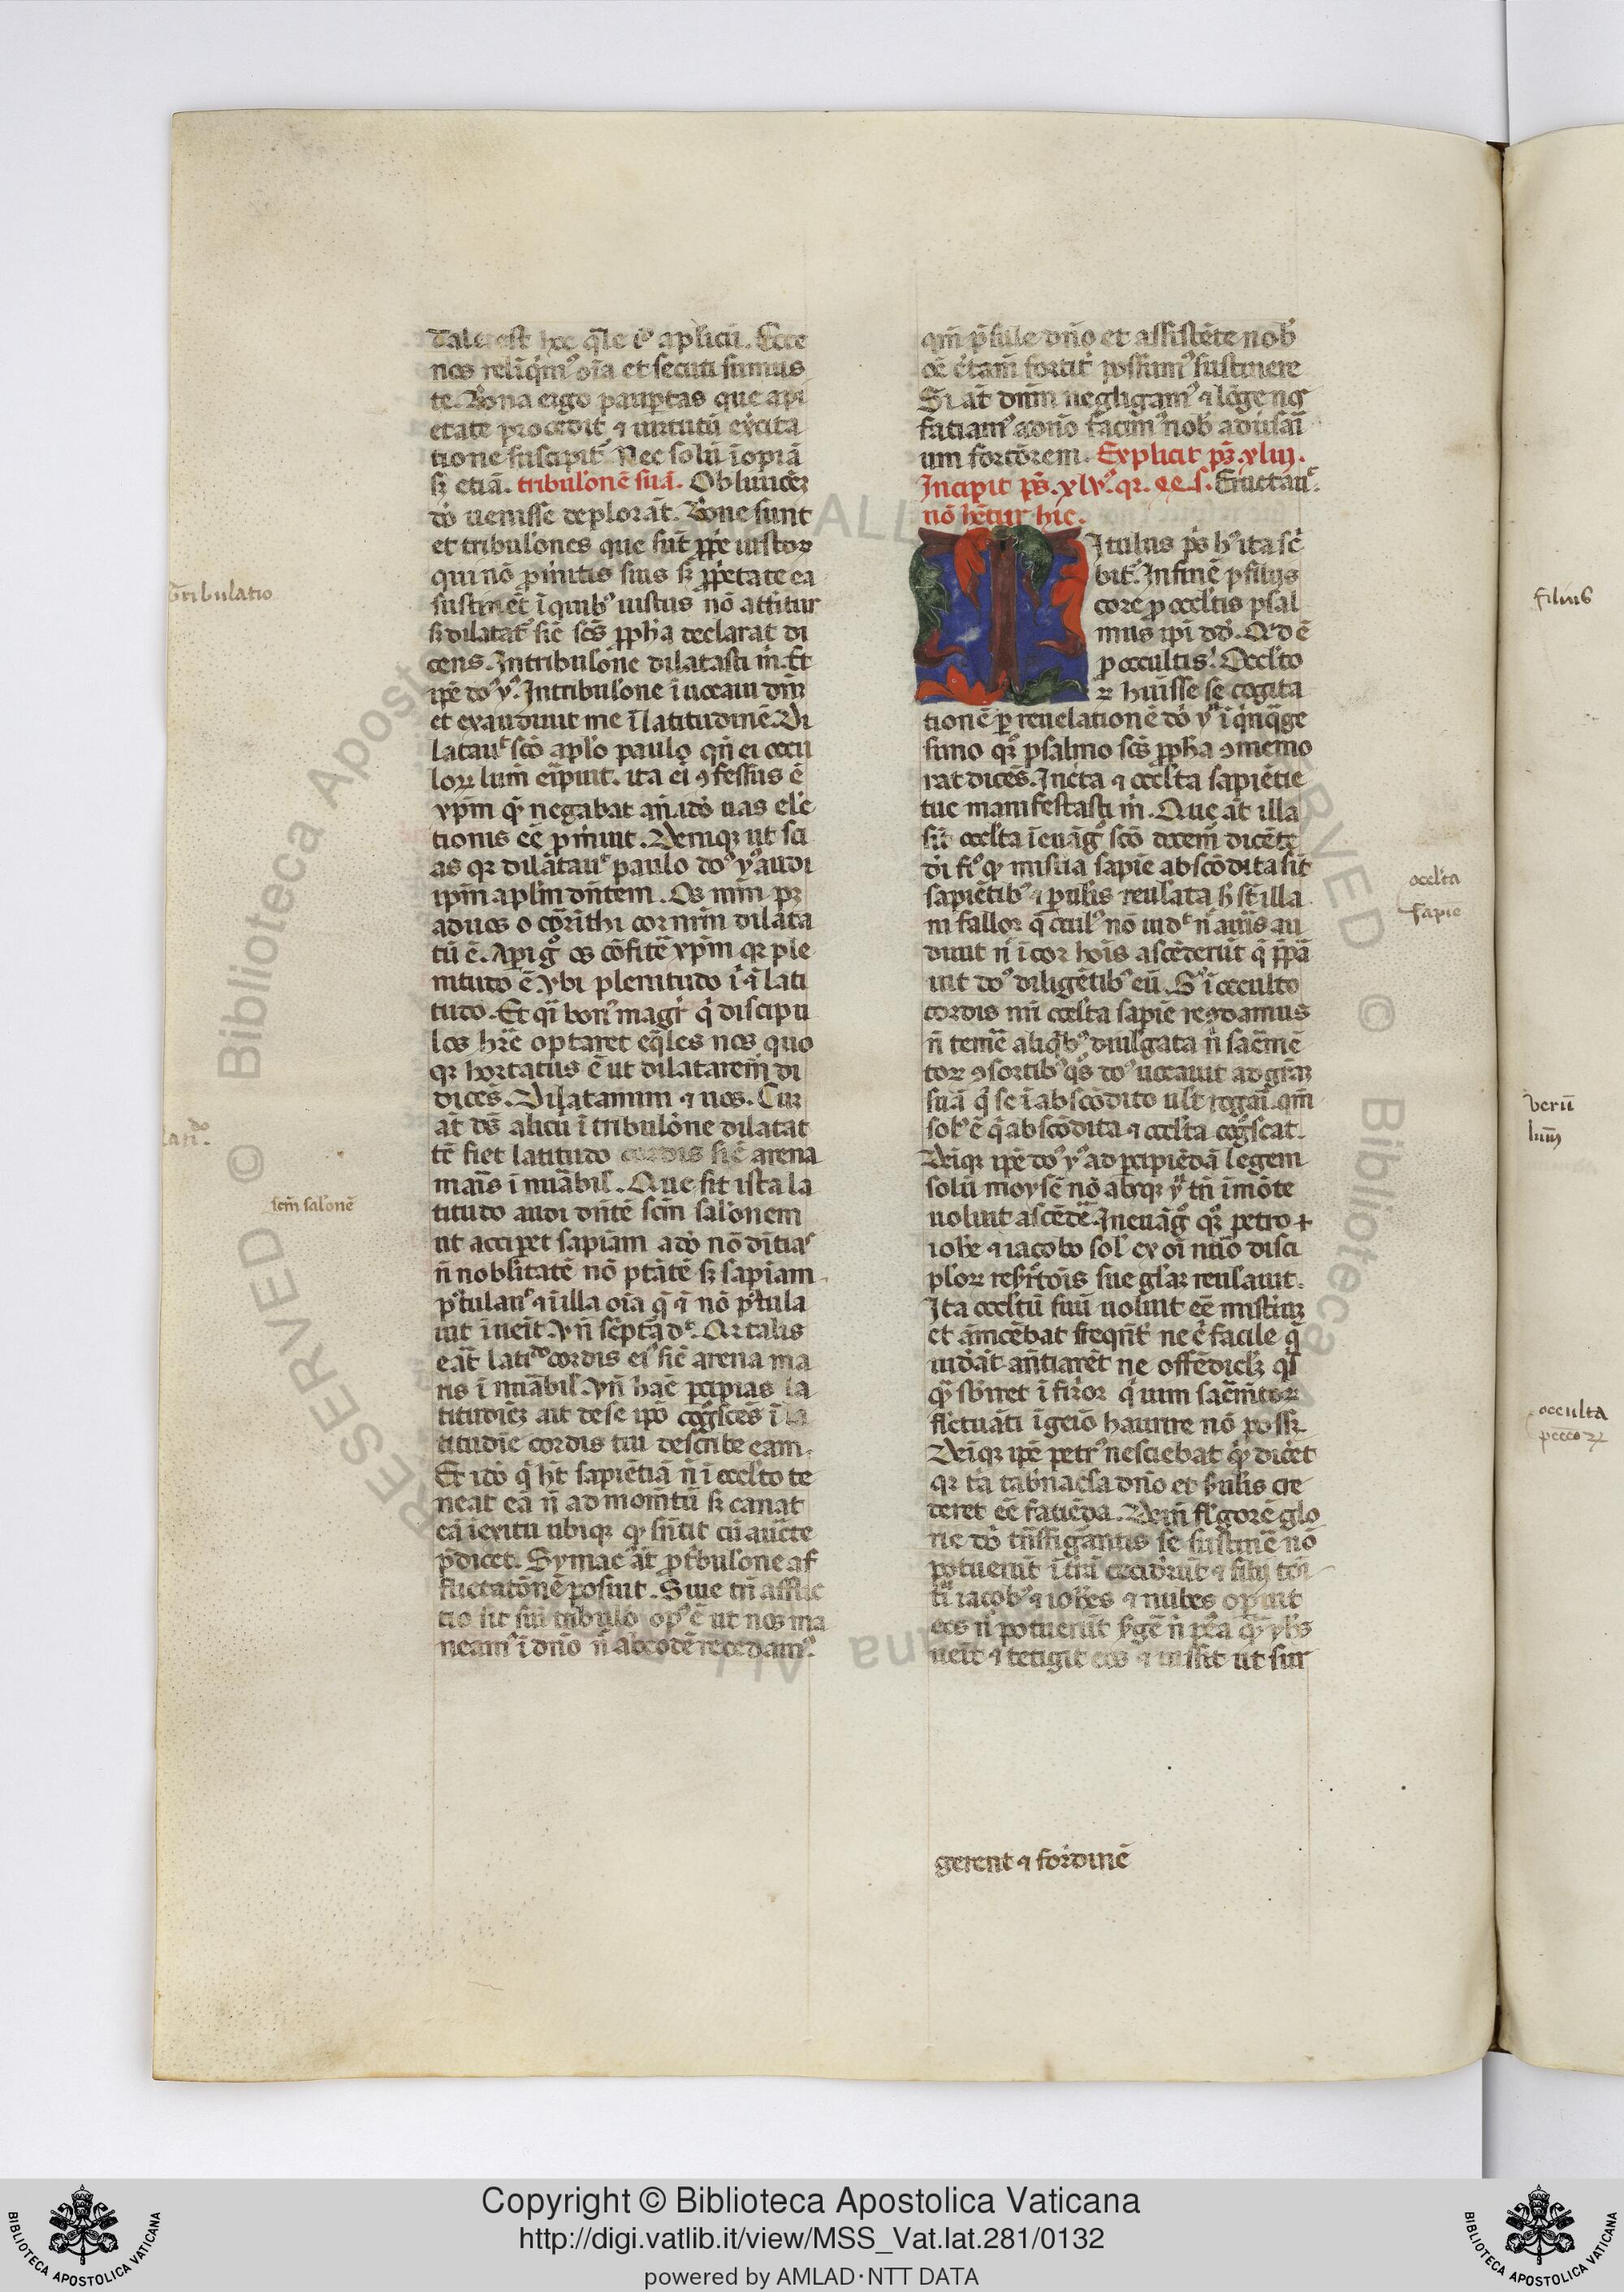 nos reliq̇mꝰ oı̄a et secuti sumus
te. Bona ergo paup̱tas que a pı
etate procedit ⁊ uirtutū exṙcita
tione suscipit̃. Nec solū ı̄opiā
sꝫ etiā. tribul̓onē suā. Obliuiscēꝫ
dō uenisse deplorāt. Bone sunt
et tribul̓ones que sūt ꝓp̄e iustoꝝ
qui nō
sustinēt ı̄ quibꝰ iustus nō attitur
sꝫ dilatat̃ sic̄ sc̄s ꝓph̄a declarat di
cens. In tribul̓one dilatasti m̄. Et
ip̄e dō yꝰ. In tribul̓one ı̄uocaui dn̄m
et exaudiuit me ı̄ latitudinē. Di
latauͭ sc̄o apl̓o paulo qn̄ ei occu
loꝝ lum̄ eripuit. ita ei ꝯfessus ē
xp̄m qͥ negabat an̄. idō uas elc̄
tionis eē p̱ miuit. Deniqꝫ ut sci
as qꝛ dilatauͭ paulo dō yꝰ audi
ip̄m apl̄m dn̄tem. Os nr̄m pꝫ
ad uos o corinthi cor nr̄m dilata
tū ē. Ap̱i gͦ os cōfitē xp̄m qꝛ ple
nitudo ē. Vbi plenitudo ı̄ ⁊ lati
tudo. Et qͣi bonꝰ magr̄ qͥ discipu
los hr̄e optaret eq̄les nos quo
qꝛ hortatus ē ut dilatarem̄ di
dicēs. Dilatamini ⁊ uos. Cur
āt dꝰ̄ alicui ı̄ tribul̓one dilatat
tē fiet latitudo cordis sic̄ arena
maı̄s ı̄nuābil̓. Que sit ista la
titudo audi dn̄tē scm̄ salonem
ut accip̱et sapīam a dō nō diͭtiaˢ
n̄ nobl̓itatē nō ptātē sꝫ sapīam
p̱tulauͭ ⁊ ı̄ illa oı̄a q̄ ⁊ nō p̱tula
uit ı̄uēit. Vn̄ scͥptā dͤ. Qꝛ talis
eāt latiᵈᵒ cordis eiꝰ sic̄ arena ma
ris ı̄nuābil̓. Vn̄ hāc p̱cipias la
titudiēꝫ ait de se ipō cogͦscēs ı̄ la
titudı̄e cordis tui describe eam.
Et idō qͥ ht̄ sapiētiā n̄ ı̄ occl̓to te
neat eā n̄ ad mom̄tū sꝫ canat
eā ı̄ exitu ubiqꝫ qͥ sn̄tit cū auc̄te
p̄dicet. Symac̄ āt ꝓ tͥbul̓one af
flictatōnē posuit. Siue tn̄ afflic
tio sit siū tribul̓o opꝰ ē ut nos ma
neamꝰ ı̄ dn̄o n̄ ab eodē recedamꝰ.
qm̄ p̄sule dn̄o et assistēte nob̓
oē c̄tam̄ fortit̓ possumꝰ sustinere
Si āt dn̄m negligamꝰ ⁊ lōge nos
fatiamꝰ a dn̄o facimꝰ nob̓ aduisaı̄
um fortōrem. Explicit ps̄. xliij.
Incipit ps̄. xlvꝰ. qꝛ. Eructauͭ.
nō hēt̃ur hic.
Titulus ps̄ hꝰ ita sc̄
bit̃. In finē p̱ filijs
core ꝓ occl̓tis psal
mus ipi dd̄. Qͥd ē
ꝓ occultis. Occl̓to
ꝝ huı̄sse se cogita
tionē ꝑ reuelationē dō yꝰ ı̄ qͥnqͣge
simo qͦꝫ psalmo sc̄s ꝓph̄a ꝯmemo
rat dicēs. Incͭta ⁊ occl̓ta sapiētie
tue manifestasti m̄. Que āt illa
sūt occl̓ta ı̄ euāgͦ scō docem̄ dicēte
dı̄ fiͦ qͥ misͭia sapiē abscōdita sit
sapiētibꝰ ⁊ paruul̓is reul̓ata hͥ st̄ illa
ni fallor q̄ occul̓ꝰ nō uidͭ n̄ auis au
diuit n̄ ı̄ cor hois ascēderūt q̄ p̄pā
uit dōꝰ diligētibꝰ eū. Sꝫ ı̄ occulto
cordis nr̄i occl̓ta sapiē recōdamus
n̄ temē aliqͥbꝰ diuilgata n̄ sac̄mē
toꝝ ꝯsortibꝰ qͦs dōꝰ uocauit ad gr̄aꝫ
suā
solꝰ ē q̄ abscōdita ⁊ occl̓ta cogͦscat.
Deı̄qꝫ ip̄e dōꝰ yꝰ ad p̱cipiēdā legem
solū moysē nō absqꝫ yͣ tn̄ ı̄ mōte
uoluit ascēdē. In euāgͦ qͦꝫ petro ⁊
ioh̄e ⁊ iacobo solꝰ ex oı̄ nuͦo disci
ploꝝ resͥrtōis sue gl̓aꝫ reul̓auit.
Ita occl̓tū suū uoluit eē misͭiuꝫ
et āmōēbat freqn̄t̓ ne c̄ facile q̄
uidāt an̄tiarēt ne offēdicl̓ꝫ qͣi
qͥ sbn̄ret ı̄ firͥor qͥ uim sac̄mtoꝝ
fluctuāti ı̄geīo haurire nō possꝫ.
Deı̄qꝫ ip̄e petrꝰ nesciebat qͥ dicͤet
qꝛ tͥa tabn̄acl̓a dn̄o et suul̓is cre
deret eē fatiēda. Dein̄ fl̓gorē glo
rie dō tn̄sfigāntis se sustinē nō
potuerūt
tͥi iacobꝰ ⁊ ioh̄es ⁊ nubes opuit
eos n̄ potuerūt
ueīt ⁊ tetigit eos ⁊ iussit ut sur
gerent ⁊ fordinē
Tribulatio
scm̄ salonē
occl̓ta
sapie
filius
verū
lum̄
occulta
pccōꝝ
Copyright © Biblioteca Apostolica Vaticana
http://digi.vatlib.it/view/MSS_Vat.lat.281/0132
powered by AMLAD·NTT DATA
BIBLIOTECA APOSTOLICA VATICANA
BIBLIOTECA APOSTOLICA VATICANA